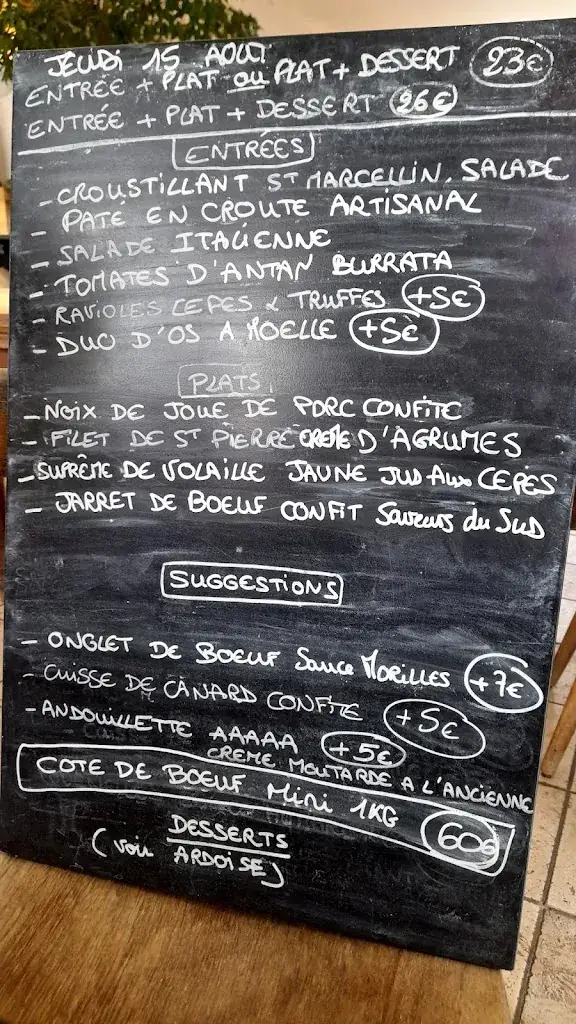 JEUDI 15 AOUT
ENTRÉE + PLAT OU PLAT + DESSERT 23€
ENTRÉE + PLAT + DESSERT 26€
ENTRÉES
- CROUSTILLANT ST MARCELLIN. SALADE
- PATÉ EN CROUTE ARTISANAL
- SALADE ITALIENNE
- TOMATES D'ANTAN BURRATA
- RAVIOLES CEPES & TRUFFES +5€
- DUO D'OS A MOELLE +5€
PLATS
- NOIX DE JOUE DE PORC CONFITE
- FILET DE ST PIERRE CREME D'AGRUMES
- SUPRÊME DE VOLAILLE JAUNE JUS AUX CEPES
- JARRET DE BOEUF CONFIT Saveurs du SUD
SUGGESTIONS
- ONGLET DE BOEUF Sauce MORILLES +7€
- CUISSE DE CANARD CONFITE +5€
- ANDOUILLETTE AAAAA +5€
CREME MOUTARDE A L'ANCIENNE
COTE DE BOEUF Mini 1KG 60€
DESSERTS
(voir ARDOISE)